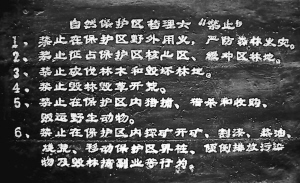 自然保护区管理六“禁止”
1、禁止在保护区野外用火，严防森林火灾。
2、禁止征占保护区核心区、缓冲区林地。
3、禁止砍伐林木和毁坏林地。
4、禁止毁林毁草开荒。
5、禁止在保护区内猎捕、猎杀和收购、
贩运野生动物。
6、禁止在保护区内探矿开矿、割漆、
烧荒、移动保护区界桩、倾倒排放污染
物及毁林搞副业等行为。